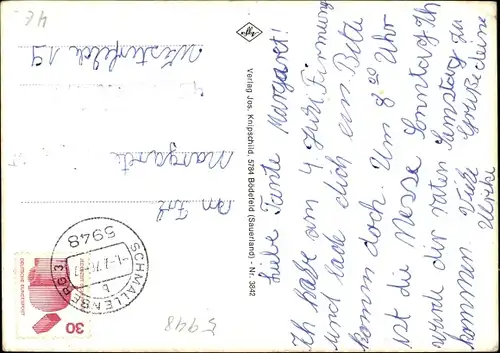 Liebe Tante Margaret!
Ich habe am 4. Juli Firmung
und lade dich ein. Bitte
komm doch. Um 8 30 Uhr
ist die Messe Sonntag. Ich
würde dir raten Samstag zu
kommen. Viele Grüße deine
Ulrike
Verlag Jos. Knipschild, 5784 Bödefeld (Sauerland) - Nr. 3642
Westerfeld 19
Margarete
Am
SCHMALLENBERG 3
5948
b
DEUTSCHE BUNDESPOST
30
5948
4€